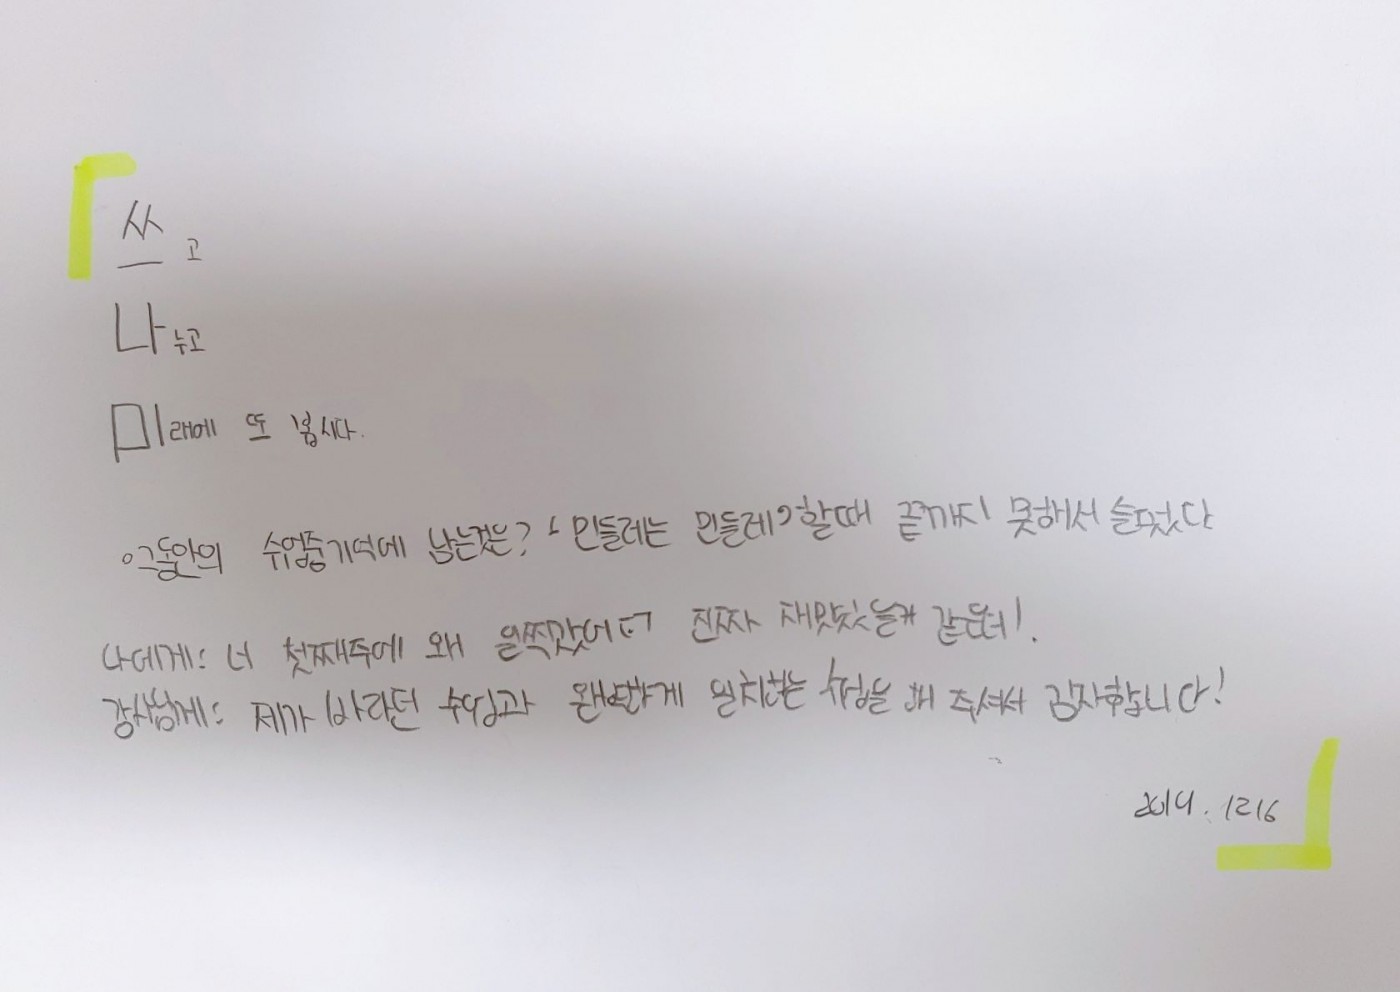 쓰고
나누고
미래에 또 봅시다.
그동안의 수업중 기억에 남는것은? 민들레는 민들레 할때 끝까지 못해서 슬펐다
나에게: 너 첫째주에 왜 진짜 재밌었을거 같은데!
강사님께: 제가 바라던 수업과 완벽하게 일치하는 수업을 해 주셔서 감사합니다!
2019. 12 16